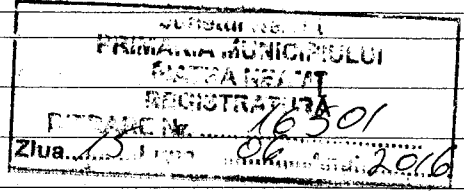 PRIMĂRIA MUNICIPIULUI
PIATRA NEAMȚ
REGISTRATURĂ
INTRARE Nr. ...... 16501
Ziua.... 15 Luna 06 2016